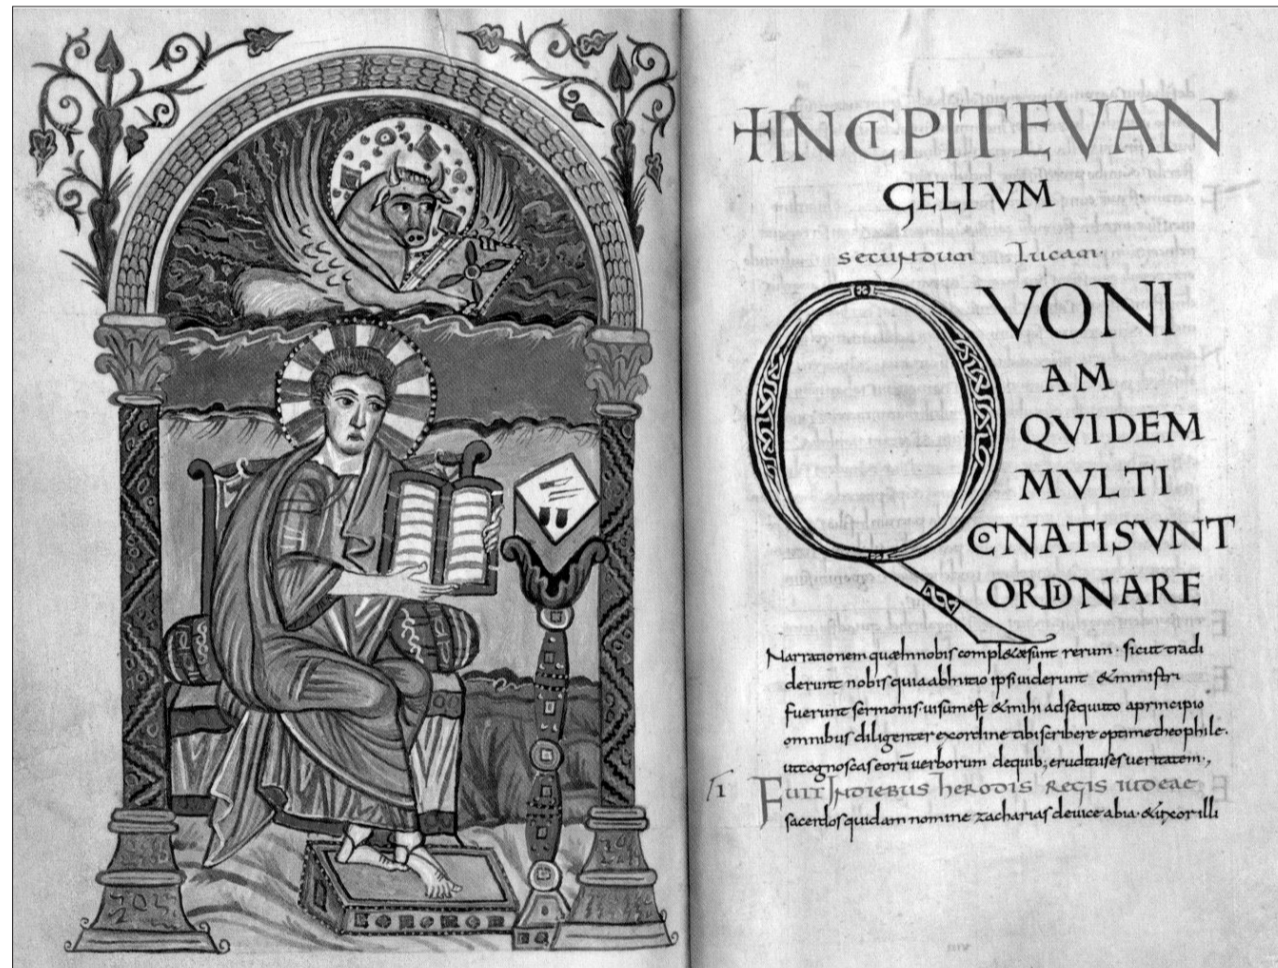 +INCIPITEVAN
GELIVM
secundum Lucam·
QVONI
AM
QVIDEM
MVLTI
CONATISVNT
ORDINARE
Narrationem quaeInnobis compl&aesunt rerum· sicut tradi
derunt nobis quiaabInitio ipsiuiderunt &ministri
fuerunt sermonis· uisumest &mihi adsequto aprincipio
omnibus diligenter exordine tibiscribere optimetheophile·
utcognoscas eorū uerborum dequib; eruditusesueritatem·,
I FUIT INDIEBUS hERODIS REGIS IUDEAE
sacerdosquidam nomine zacharias deuice abia· &uxor illi